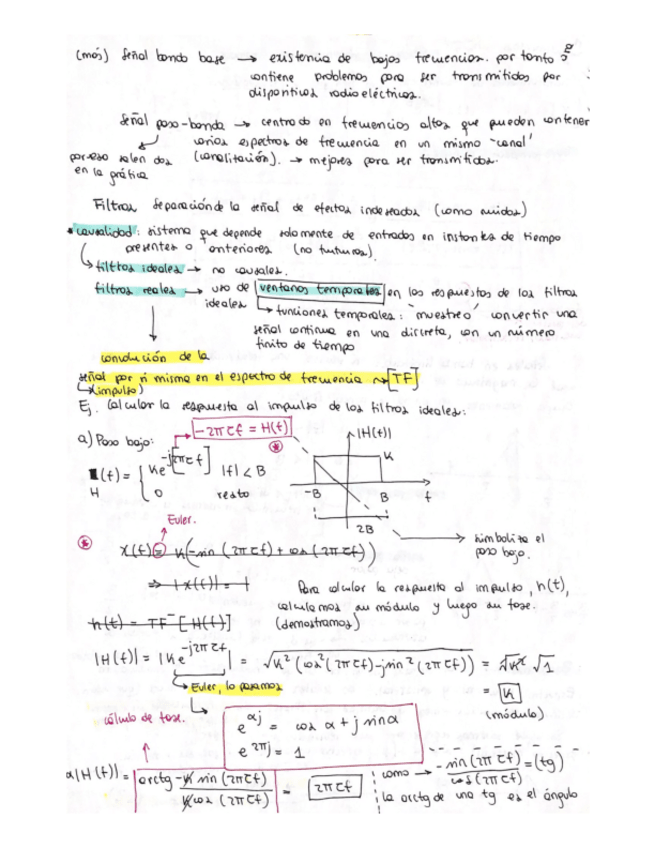 (más) Señal banda base → existencia de bajas frecuencias. por tanto
contiene problemas para ser transmitidas por
dispositivos radioeléctricos.
Señal paso-banda → centrado en frecuencias altas que pueden contener
varios espectros de frecuencia en un mismo "canal"
por eso salen dos (canalitación). → mejores para ser transmitidos.
en la prática
Filtros Separación de la señal de efectos indeseados (como ruidos)
• causalidad: sistema que depende solamente de entradas en instantes de tiempo
presentes o anteriores (no futuros).
↳ filtros ideales → no causales.
filtros reales → uso de ventanas temporales en las respuestas de los filtros
ideales ↳ funciones temporales: "muestreo" convertir una
señal continua en una discreta, con un número
finito de tiempo
convolución de la
señal por si misma en el espectro de frecuencia → [TF]
↳ (impulso)
Ej. Calcular la respuesta al impulso de los filtros ideales:
a) Paso bajo: -2πτf = H(f)
H(f) = { Ke^-j[2πτf] |f| < B
0 resto
|H(f)|
K
-B B f
2B
simboliza el
paso bajo.
Euler.
* X(f) = K(-sin (2πτf) + cos (2πτf))
⇒ |X(f)| = 1
Para calcular la respuesta al impulso, h(t),
calculamos su módulo y luego su fase.
h(t) = TF⁻[H(f)] (demostramos)
|H(f)| = |Ke^-j2πτf| = √K² (cos²(2πτf)-jsin²(2πτf)) = √K² √1
= K
(módulo).
↳ Euler, lo pasamos
cálculo de fase.
e^αj = cos α + j sin α
e^2πj = 1
α|H(f)| = arctg -K sin (2πτf) / K cos (2πτf) = 2πτf
como → - sin (2πτf) / cos (2πτf) = (tg)
la arctg de una tg es el ángulo